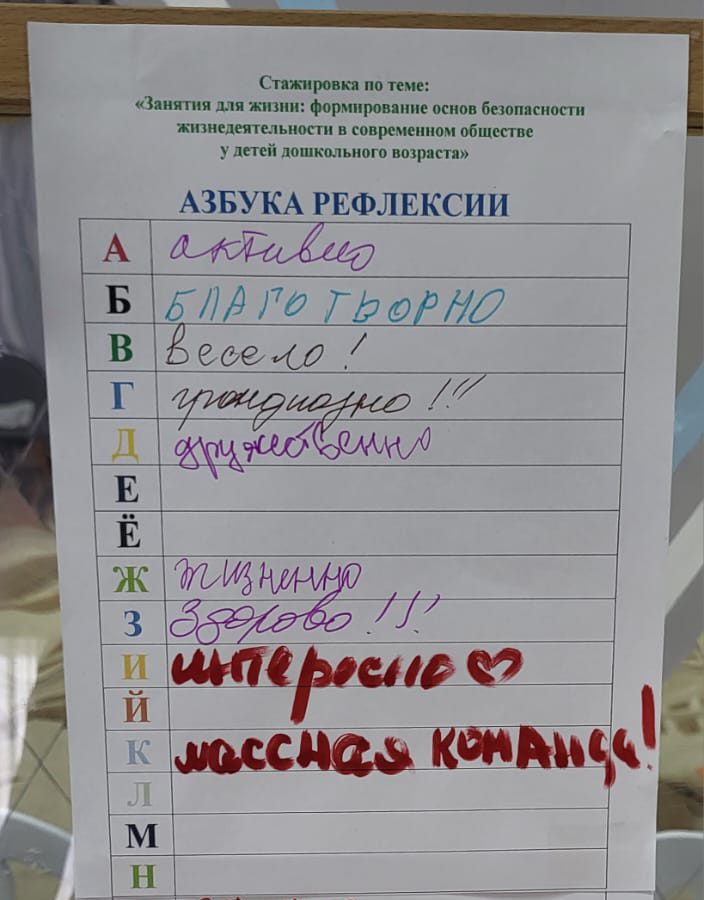 Стажировка по теме:
«Занятия для жизни: формирование основ безопасности
жизнедеятельности в современном обществе
у детей дошкольного возраста»
АЗБУКА РЕФЛЕКСИИ
А активно
Б БЛАГОТВОРНО
В Весело!
Г грандиозно!!!
Д дружественно
Е
Ё
Ж жизненно
З Здорово!!!
И интересно
Й
К классная команда!
Л
М
Н